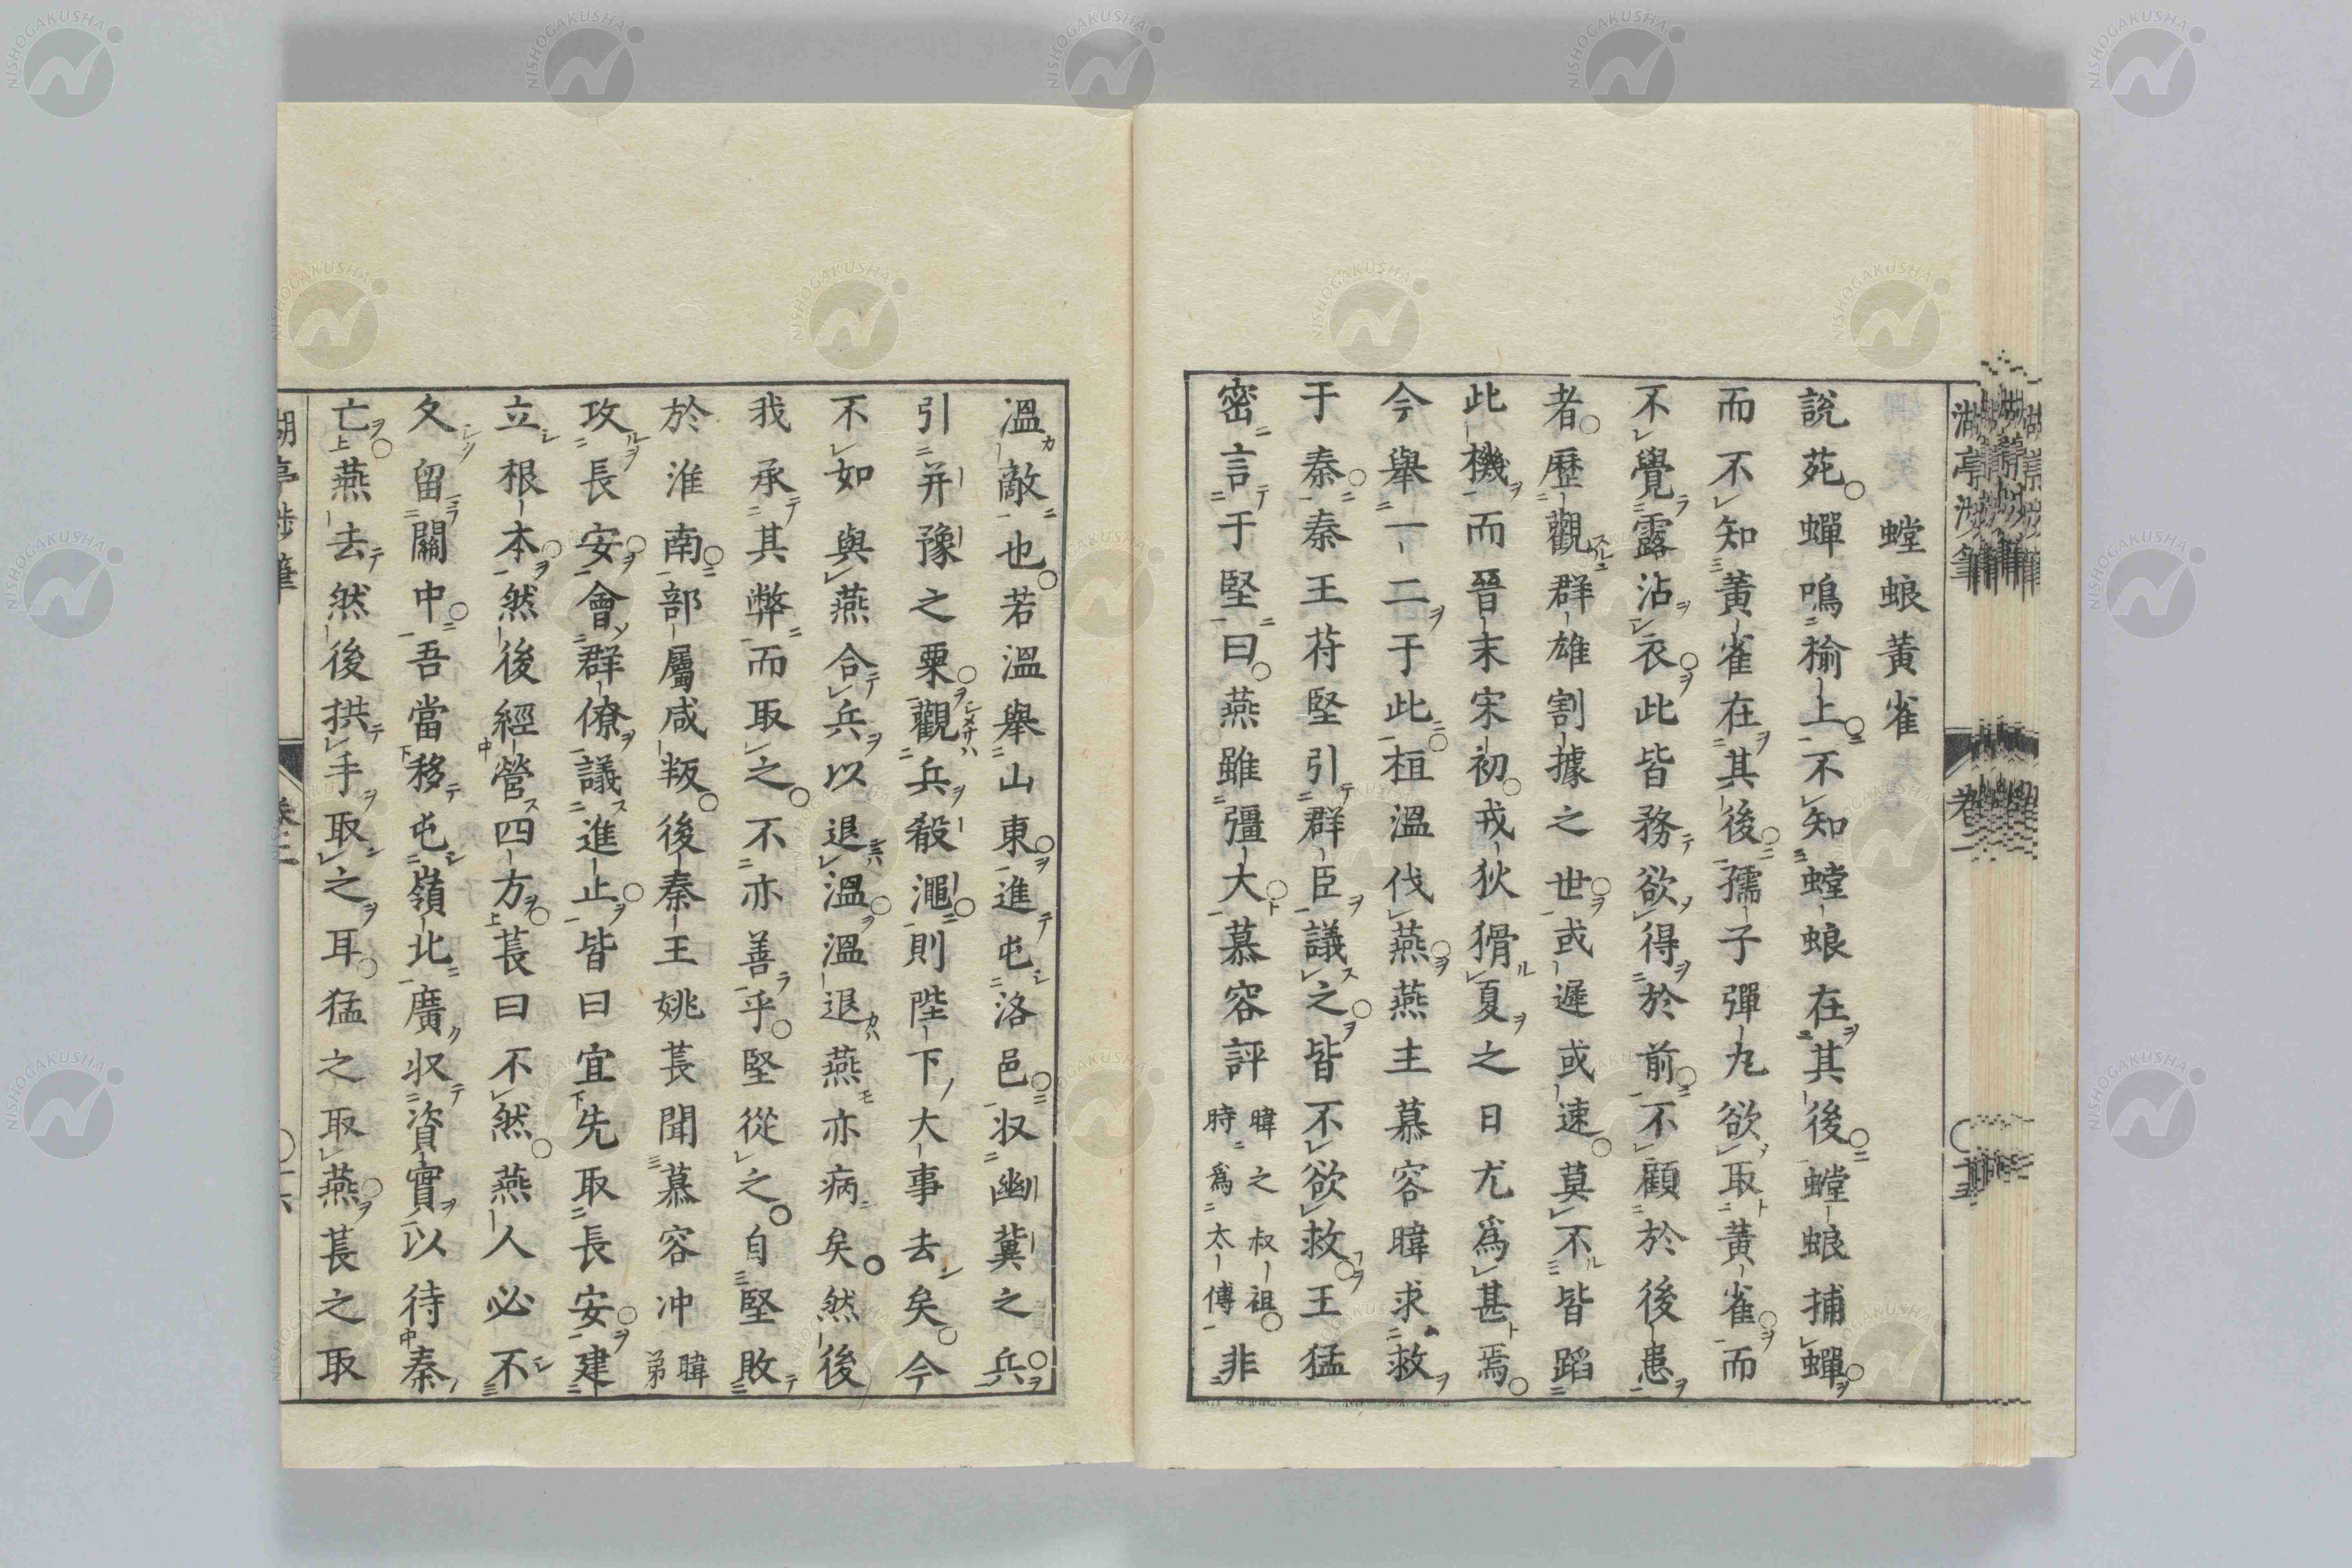 螳蜋黃雀
說苑蟬鳴楡上不知螳蜋在其後螳蜋捕蟬
而不知黃雀在其後孺子彈丸欲取黃雀而
不覺露沾衣此皆務欲得於前不顧於後患
者歷觀群雄割據之世或遲或速莫不皆蹈
此機而晉末宋初戎狄猾夏之日尤爲甚焉
今舉一二于此桓溫伐燕燕主慕容暐求救
于秦秦王苻堅引群臣議之皆不欲救王猛
密言于堅曰燕雖彊大慕容評暐之叔祖時爲太傅非
溫敵也若溫舉山東進屯洛邑収幽冀之兵
引并豫之粟觀兵殽澠則陛下大事去矣今
不如與燕合兵以退溫溫退燕亦病矣然後
我承其弊而取之不亦善乎堅從之自堅敗
於淮南部屬咸叛後秦王姚萇聞慕容冲暐弟
攻長安會群僚議進止皆曰宜先取長安建
立根本然後經營四方萇曰不然燕人必不
久留關中吾當移屯嶺北廣収資實以待秦
亡燕去然後拱手取之耳猛之取燕萇之取
湖亭涉筆
卷二